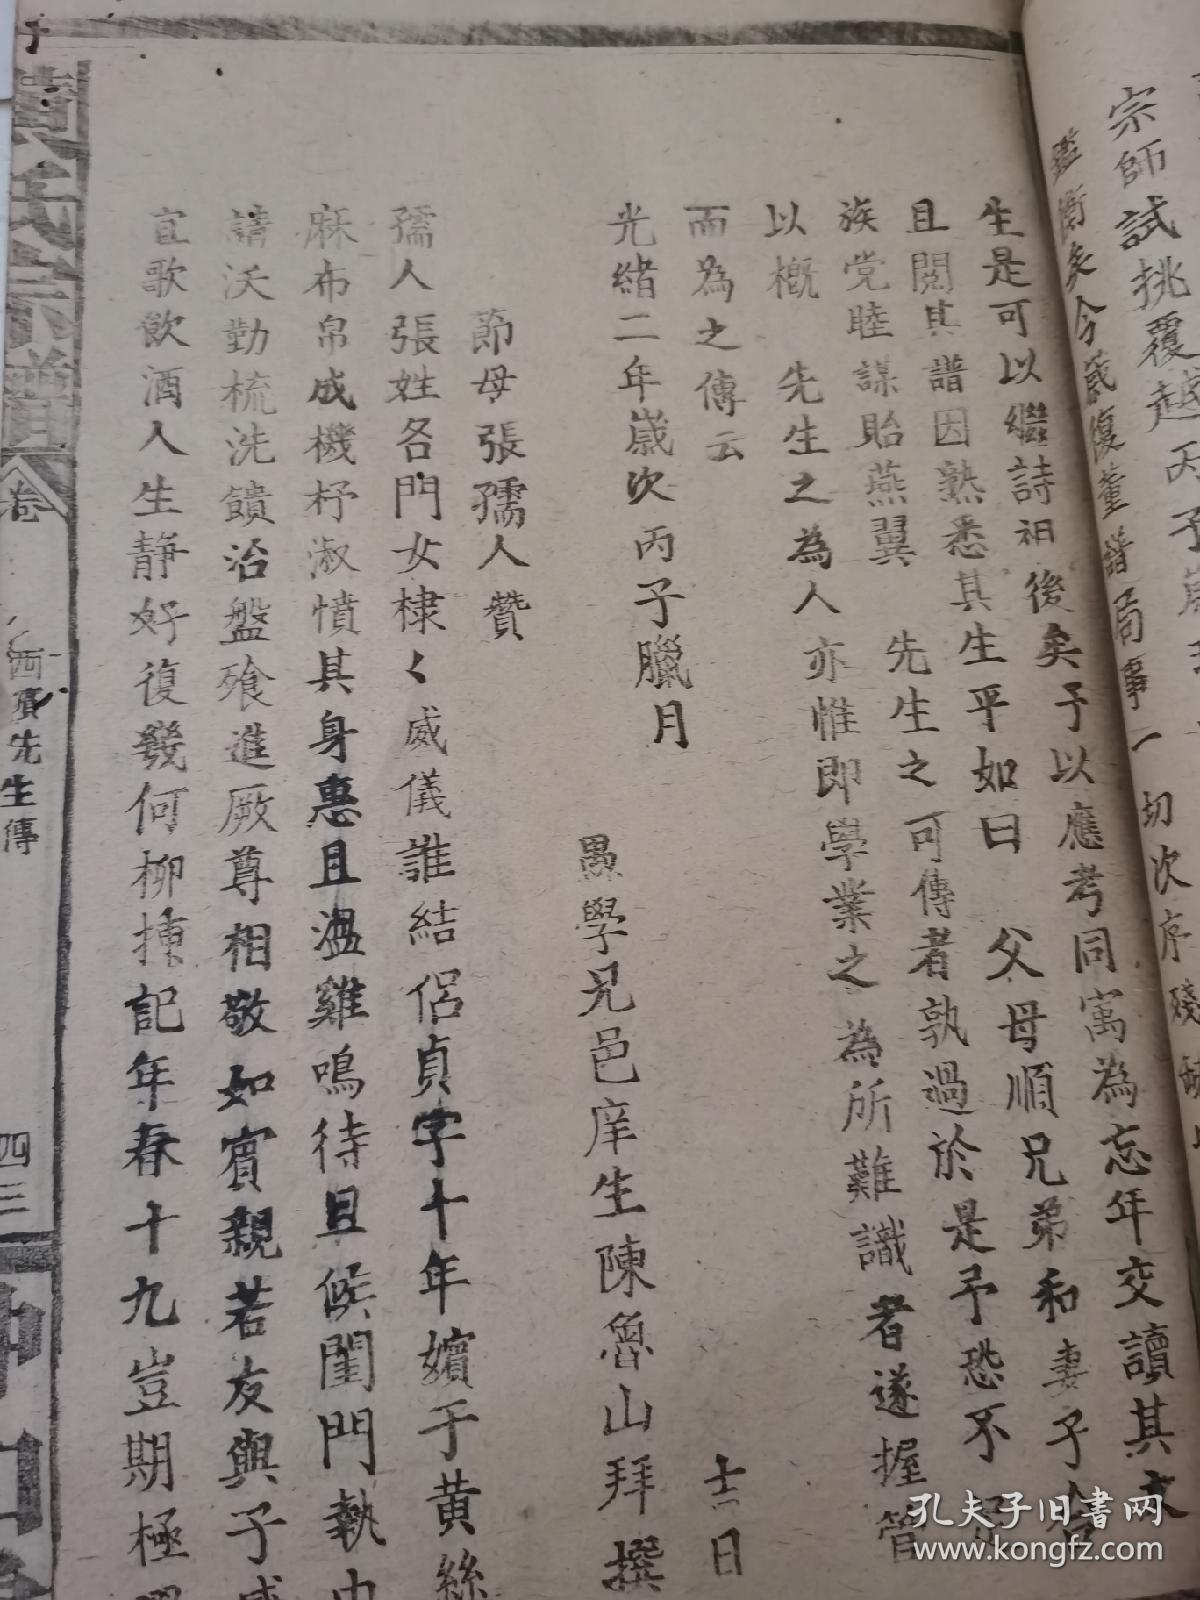 宗師試挑覆越丙子歲
鑑衡矣今歲復董譜局事一切次序殘缺
生是可以繼詩祖後矣予以應考同寓為忘年交讀其文
且閱其譜因熟悉其生平如曰 父母順兄弟和妻子合
族党睦謀貽燕翼 先生之可傳者孰過於是予恐不足
以概 先生之為人亦惟即學業之為所難識者遂握管
而為之傳云
光緒二年歲次丙子臘月 吉日
愚學兄邑庠生陳魯山拜撰
節母張孺人贊
孺人張姓各門女棣く威儀誰結侶貞字十年嬪于黄絲
麻布帛成機杼淑慎其身惠且溫雞鳴待旦候閨門執巾
請沃勤梳洗饋治盤飧進厥尊相敬如賓親若友與子
宜歌飲酒人生靜好復幾何柳揀記年春十九豈期極
黄氏宗譜
卷
西賓先生傳
四三
孔夫子旧书网
www.kongfz.com